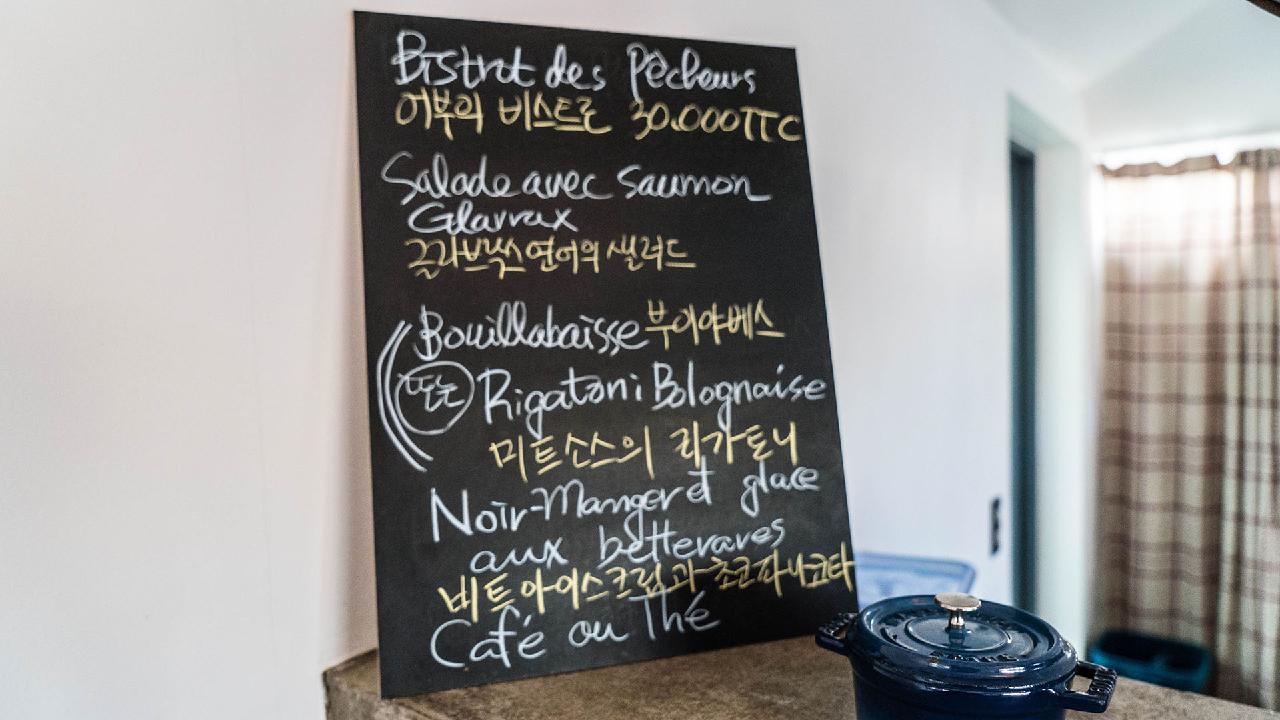 Bistrot des Pêcheurs
어부의 비스트로 30.000TTC
Salade avec saumon
Glavrax
글라브락스 연어의 샐러드
Bouillabaisse 부이야베스
또는 Rigatoni Bolognaise
미트소스의 리가토니
Noir-Manger et glace
aux betteraves
비트아이스크림과 초코파나코타
Café ou Thé